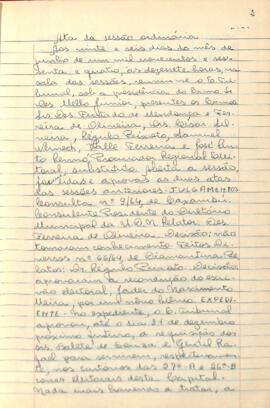 Ata da sessão ordinária
Aos vinte e seis dias do mês de
junho de um mil novecentos e ses-
senta e quatro, às dezessete horas, na
sala das sessões, reuniu-se o Tri-
bunal, sob a presidência do Exmo Sr.
Des. Mello Junior, presentes os Exmos
Srs. Des. Furtado de Mendonça e Fer-
reira de Oliveira, Drs. César Sil-
veira, Régulo Peixoto, Samuel
Werneck, Ferreira e José
Procurador Regional Elei-
toral, substituto. Aberta a sessão,
lidas e aprovadas as duas atas
das sessões anteriores. JULGAMENTOS
Consulta nº 9/64, de
Consulente: Presidente do Diretório
Municipal da U.D.N. Relator: Des.
Ferreira de Oliveira. Decisão: não
tomaram conhecimento. Feitos Di-
versos nº 66/64, de Diamantina. Re-
lator: Dr. Régulo Peixoto. Decisão:
aprovaram a recondução do escri-
vão eleitoral, Jader do Nascimento
Meira, por um novo biênio. EXPEDI-
ENTE - No expediente, o E. Tribunal
aprovou, até o dia 31 de dezembro
próximo futuro, a requisição dos
srs. Salete de Souza e Gentil Ra-
fael para servirem, respectivamen-
te, nos cartórios das 27ª A e 26ª B
zonas eleitorais desta Capital.
Nada mais havendo a tratar, a